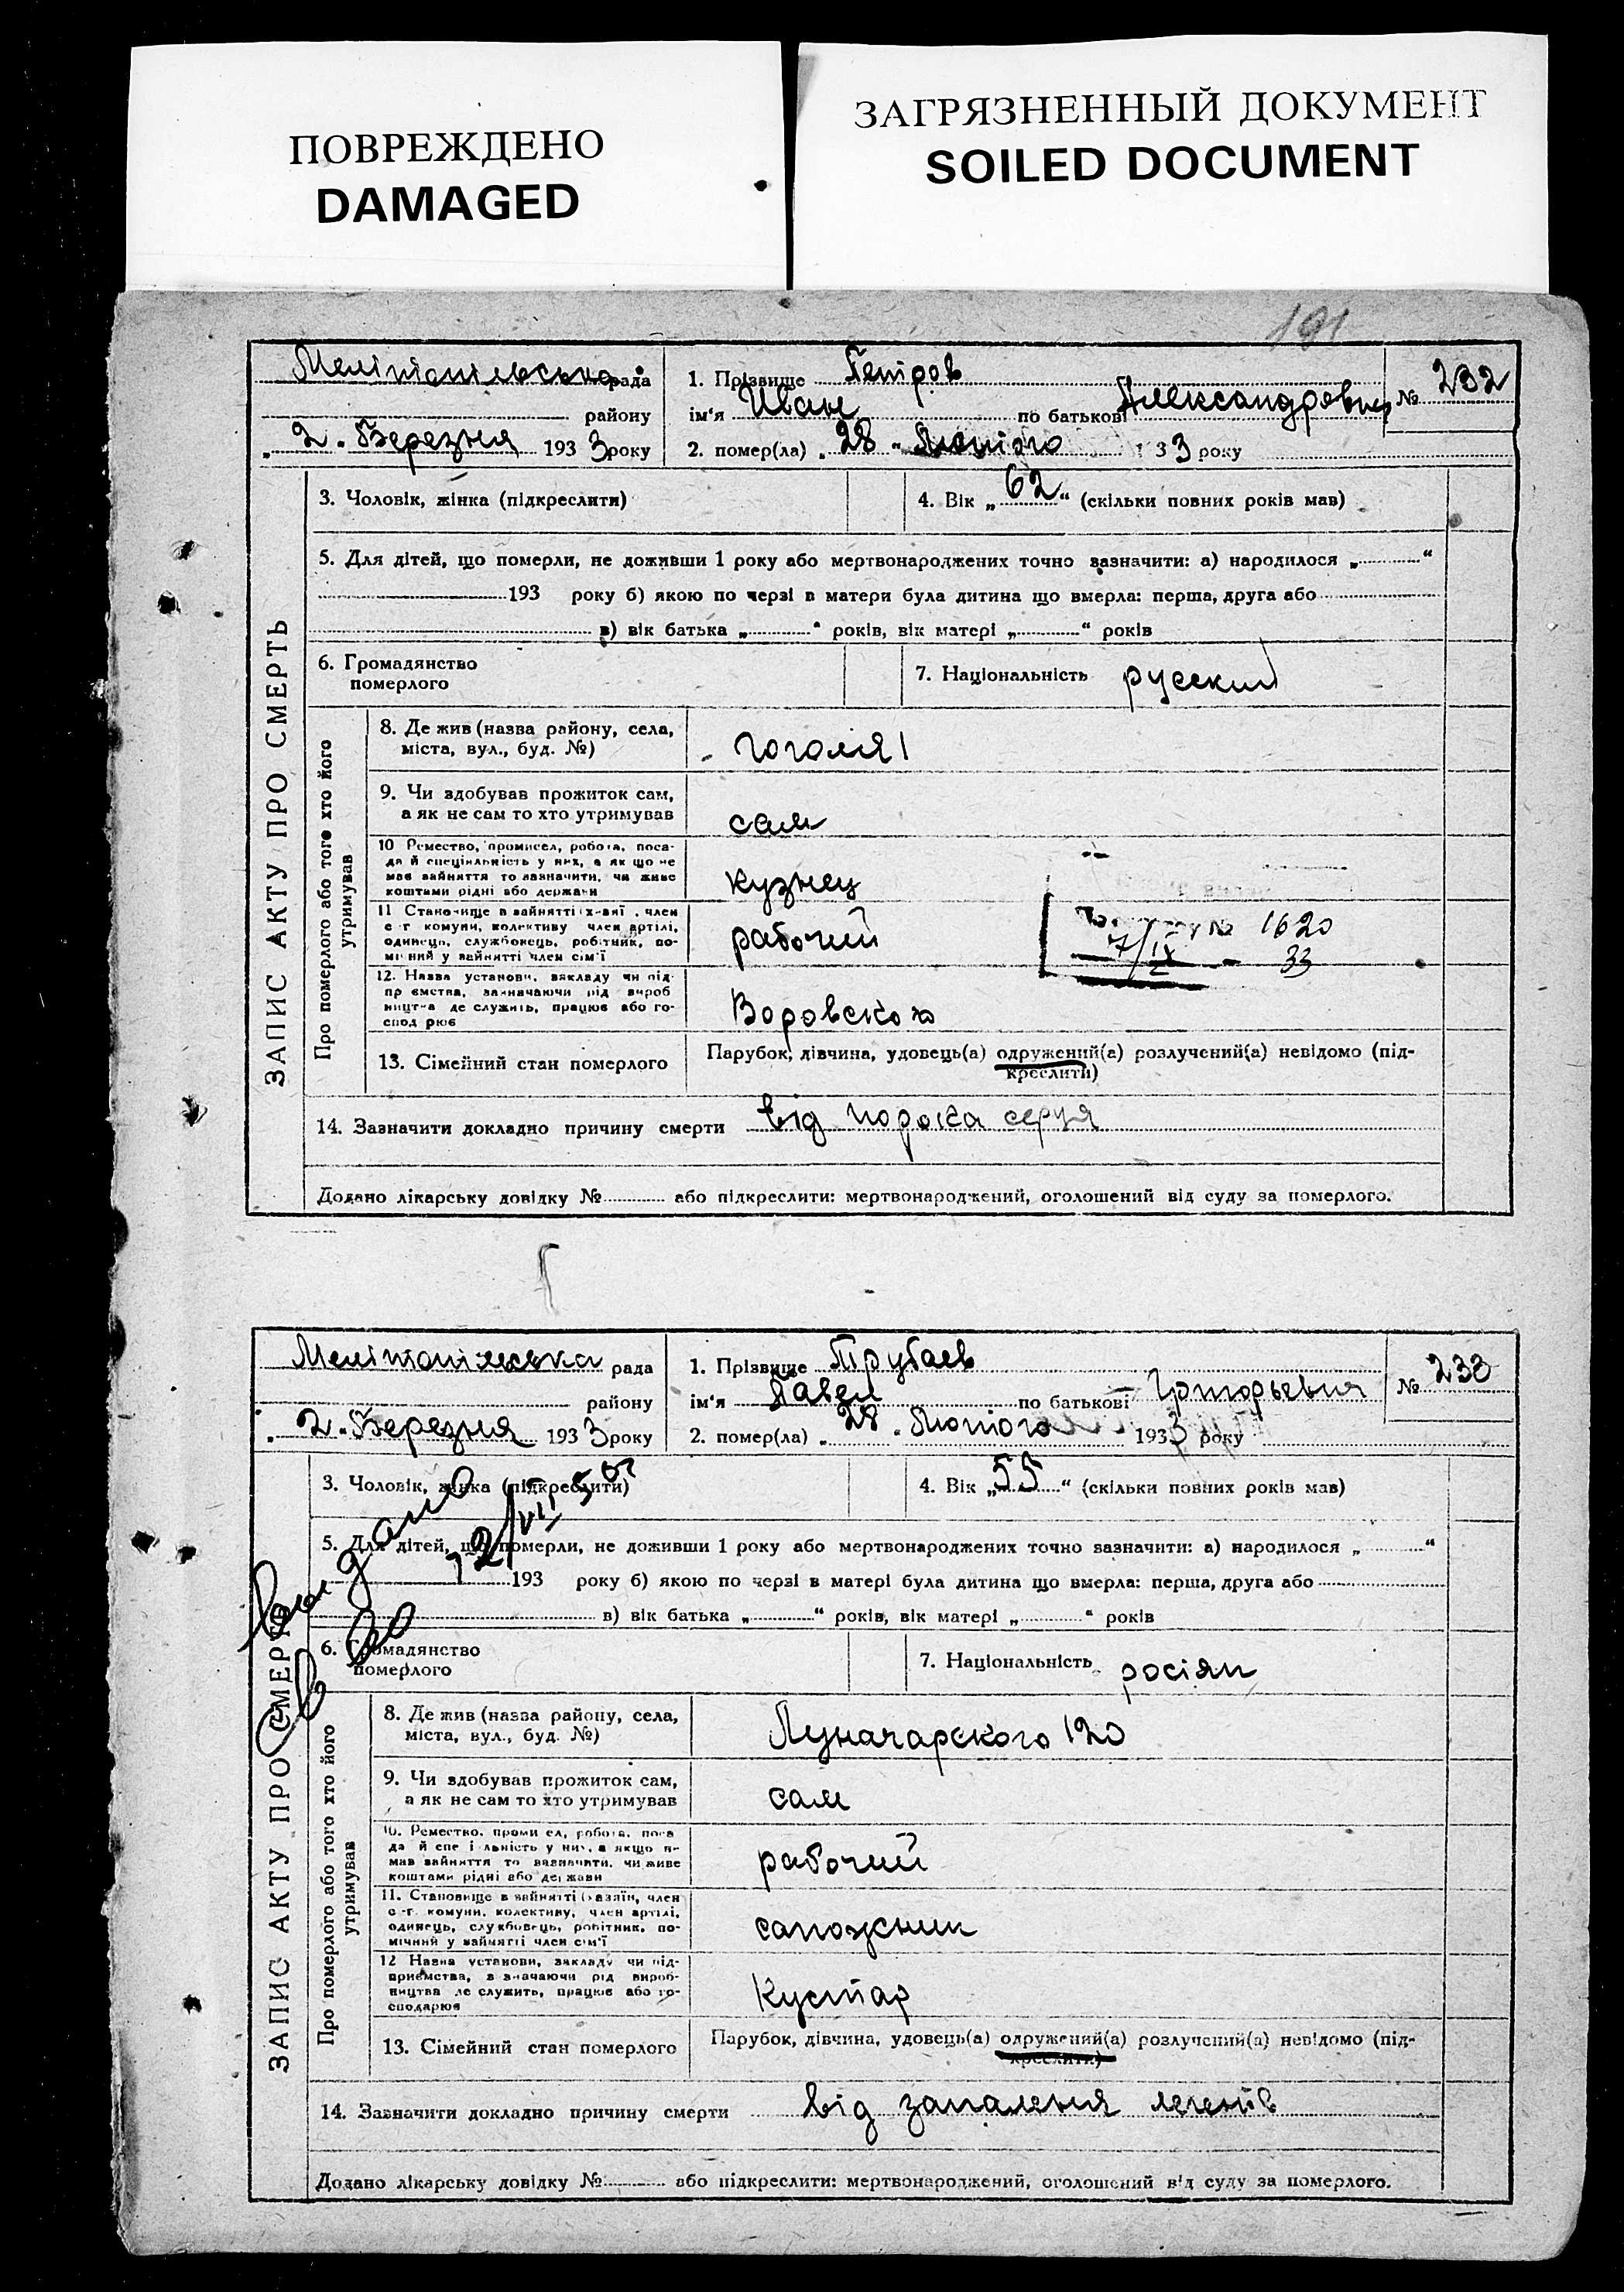 ПОВРЕЖДЕНО
DAMAGED
ЗАГРЯЗНЕННЫЙ ДОКУМЕНТ
SOILED DOCUMENT
191
ЗАПИС АКТУ ПРО СМЕРТЬ
Мелітопільська рада
району
„ 2 „ Березня 1933 року
1. Прізвище Петров
ім‘я Иван по батькові Александрович
№ 232
2. помер(ла) „ 28 „ Лютого 33 року
3. Чоловік, жінка (підкреслити)
4. Вік „ 62 “ (скільки повних років мав)
5. Для дітей, що померли, не доживши 1 року або мертвонароджених точно зазначити: а) народилося „ “
193 року б) якою по черзі в матери була дитина що вмерла: перша, друга або
в) вік батька „ “ років, вік матері „ “ років
6. Громадянство
померлого
7. Національність русский
Про померлого або того хто його
утримував
8. Де жив (назва району, села,
міста, вул., буд. №)
Гоголя 1
9. Чи здобував прожиток сам,
а як не сам то хто утримував
сам
10 Ремество, промисел, робота, поса-
да й специальність у них, а як що не
мав зайняття то зазначити, чи живе
коштами рідні або держави
кузнец
11 Становище в зайнятті (х-вяї , член
с г комуни, колективу член артілі,
одинець, службовець, робітник, по-
мічний у зайнятті член сім‘ї
рабочий
№ 1620
7/IX 33
12. Назва установи, закладу чи під-
пр ємства, зазначаючи рід вироб
ництва де служить, працює або го-
спод рює
Воровского
13. Сімейний стан померлого
Парубок, дівчина, удовець(а) одружений(а) розлучений(а) невідомо (під-
креслити)
14. Зазначити докладно причину смерти від порока серця
Додано лікарську довідку № або підкреслити: мертвонароджений, оголошений від суду за померлого.
ЗАПИС АКТУ ПРО СМЕРТЬ
Мелітопільська рада
району
„ 2 „ Березня 1933 року
1. Прізвище Трубаев
ім‘я Павел по батькові Григорьевич
№ 233
2. помер(ла) „ 28 „ Лютого 1933 року
3. Чоловік, жінка (підкреслити)
4. Вік „ 55 “ (скільки повних років мав)
5. Для дітей, що померли, не доживши 1 року або мертвонароджених точно зазначити: а) народилося „ “
193 року б) якою по черзі в матері була дитина що вмерла: перша, друга або
в) вік батька „ “ років, вік матері „ “ років
6. Громадянство
померлого
7. Національність росіян
Про померлого або того хто його
утримував
8. Де жив (назва району, села,
міста, вул., буд. №)
Луначарского 120
9. Чи здобував прожиток сам,
а як не сам то хто утримував
сам
10. Ремество, проми ел, робота, поса
да й спе і льність у них, а якщо н-
мав зайняття то зазначити, чи живе
коштами рідні або держави
рабочий
11. Становище в зайнятті (хазяїн, член
с-г. комуни, колективу, член артілі,
одинець, службовець, робітник, по-
мічний у зайнятті член сім‘ї
сапожник
12 Назва установи, закладу чи під-
приємства, зазначаючи рід вироб-
ництва де служить, працює або го-
сподарює
Кустар
13. Сімейний стан померлого
Парубок, дівчина, удовець(а) одружений(а) розлучений(а) невідомо (під-
креслити)
14. Зазначити докладно причину смерти від запалення легенів
Додано лікарську довідку № або підкреслити: мертвонароджений, оголошений від суду за померлого.